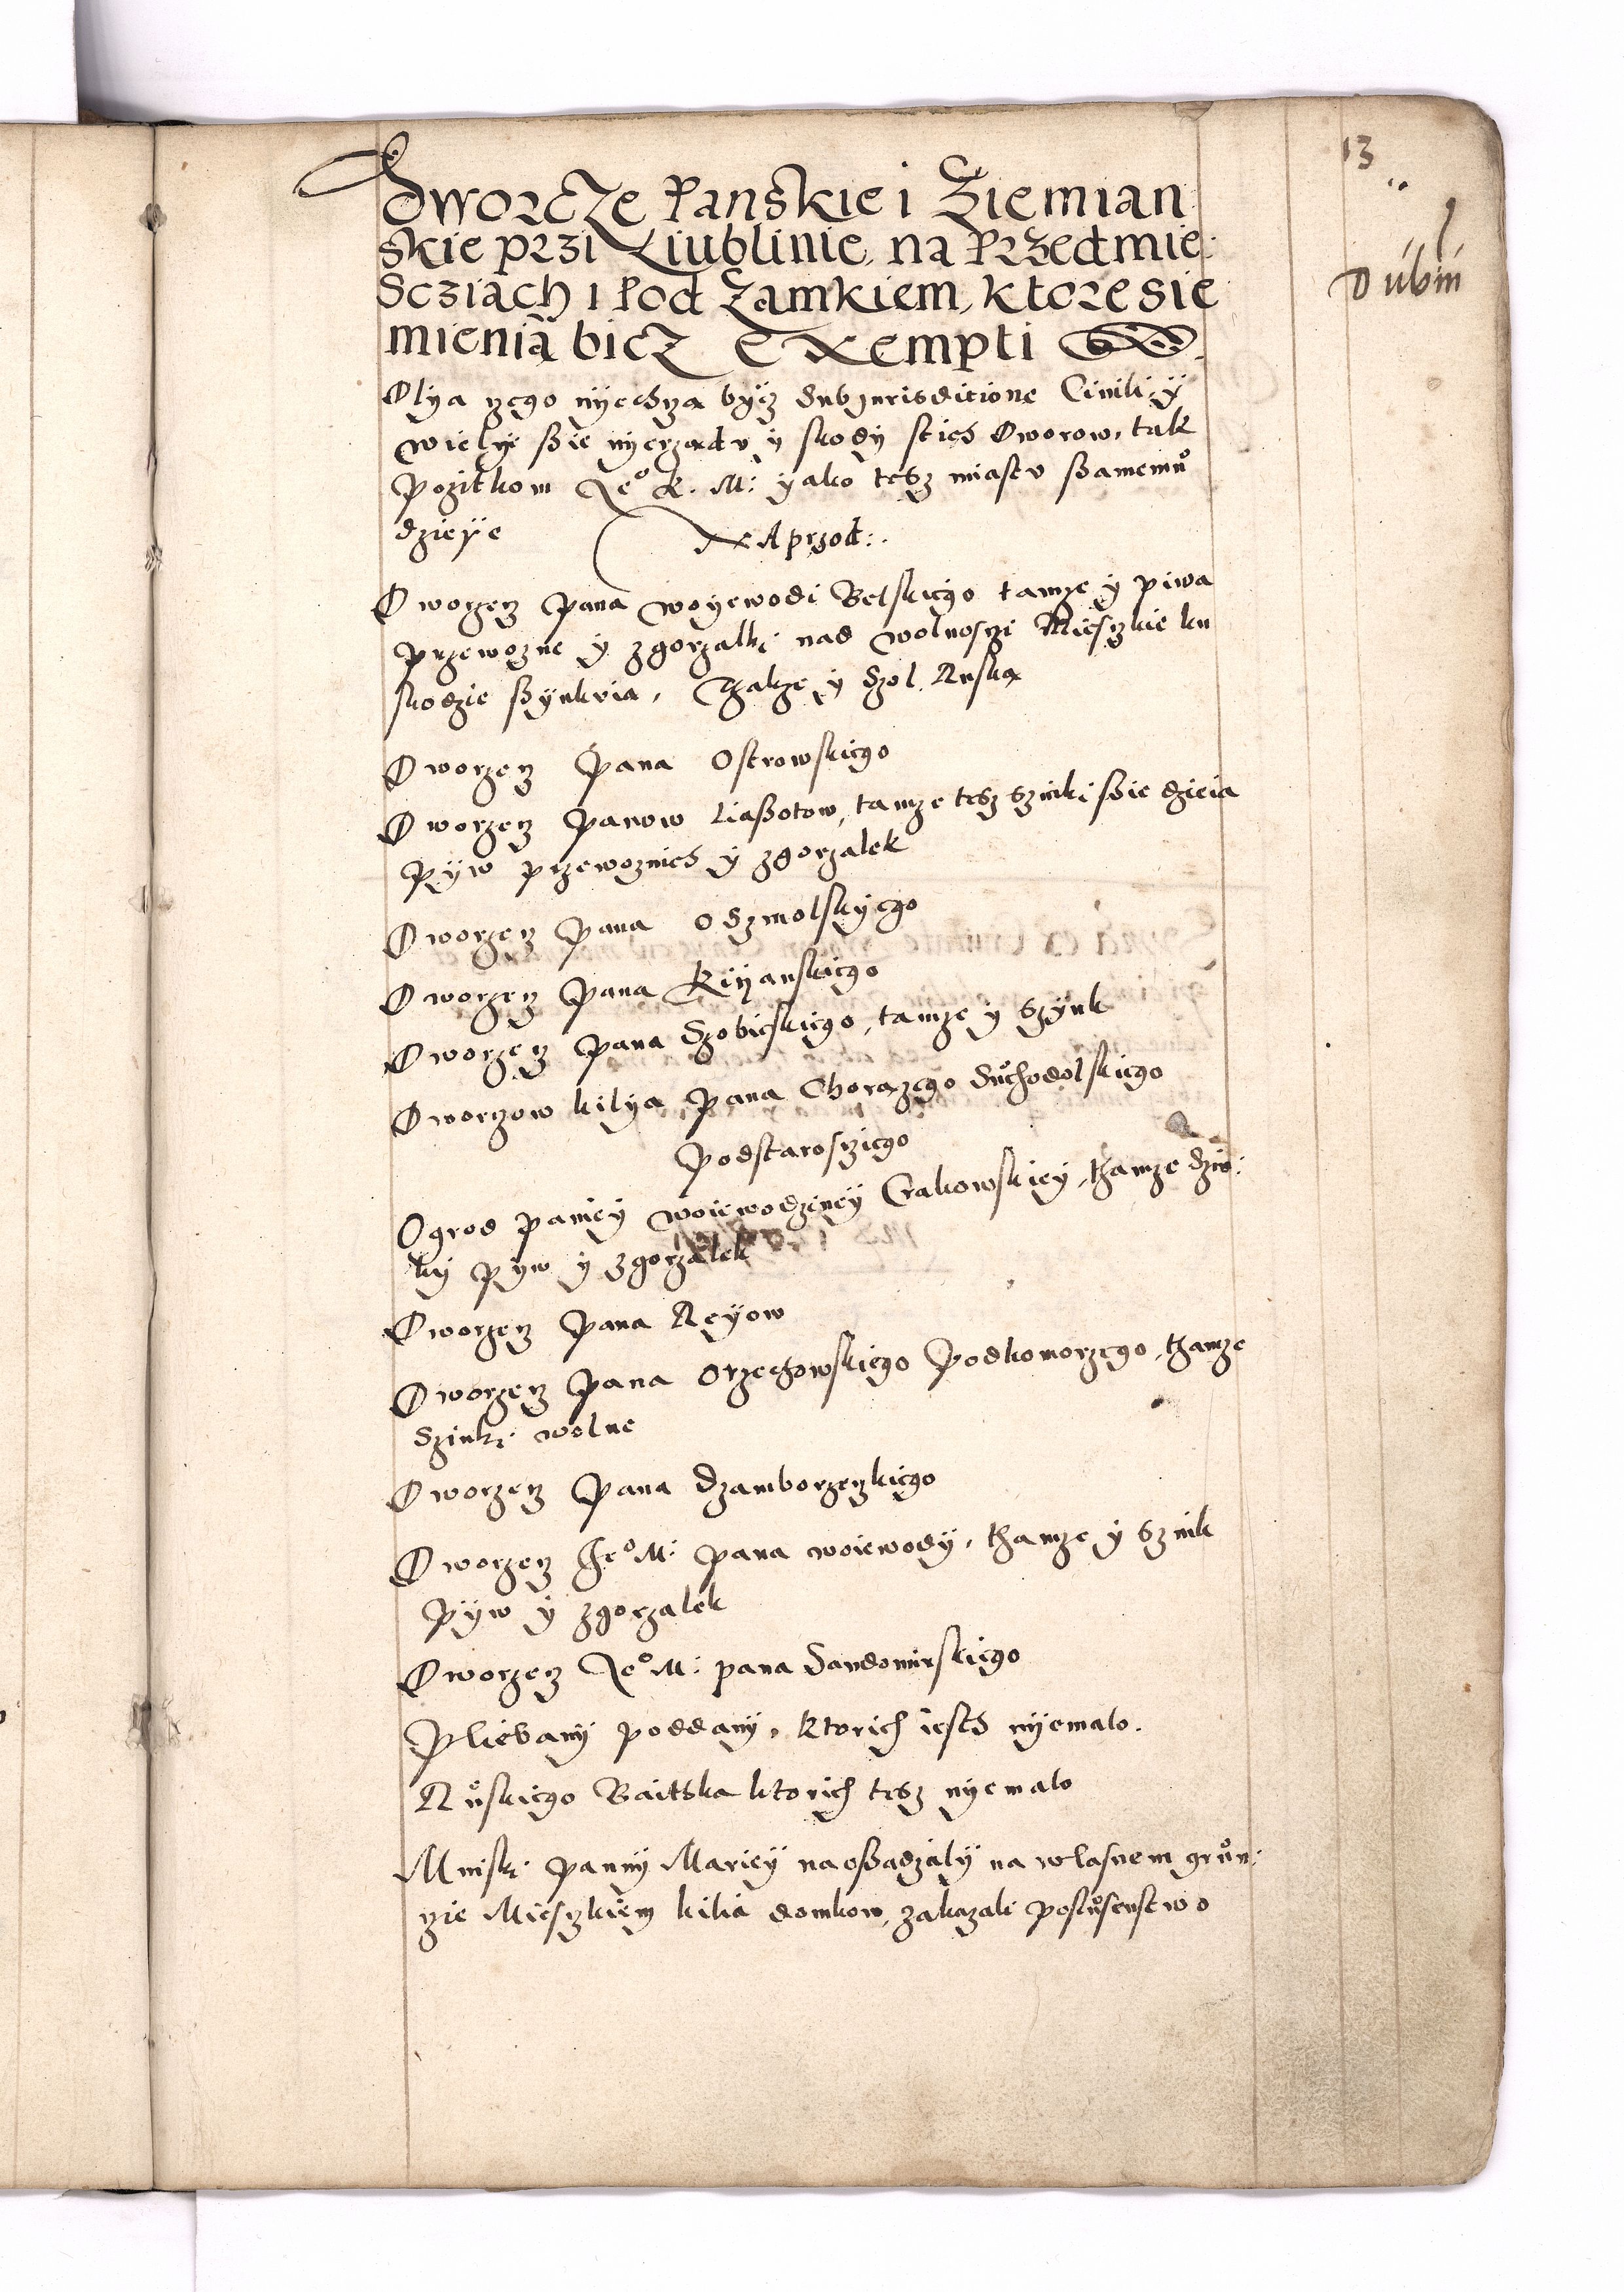 13
Dubin
Dworcze Panskie i Ziemian
skie przi Liublinie, na Przedmie:
Scziach i Pod Zamkiem, ktore sie
mienią bicz Exempti
Dlya czego nyechczą bycz Sub jurisditione Civili, y
wielye ßie nyerządu y skody stich Dworow, tak
pozitkom Je° K. M: yako tesz miastu ßamemu
dzieye Naprzod:
Dworzecz Pana woyewodi Belskiego tamze y piwa
przewozne y zgorzalki nad wolnosczi Miesczkie ku
skodzie ßynkuia, Thakze y Szol. Ruska
Dworzecz Pana Ostrowskiego
Dworzecz Panow Liaßotow, tamze tesz szinki ßie dzieia
Pyw przewoznich y zgorzalek
Dworzecz Pana Oszmolskyego
Dworzecz Pana Kiyanskiego
Dworzecz Pana Szobieskiego, tamze y szynk
Dworzow kilya Pana Chorazego Suchodolskiego
Podstarosciego
Ogrod paniey woiewodziney Crakowskiey, thamze szin:
ky Pyw y zgorzalek
Dworzecz Pana Reyow
Dworzecz Pana Orzechowskiego Podkomorzego, thamze
Szinki wolne
Dworzecz Pana Dzamborzeczkiego
Dworzecz Je° M: Pana woiewody, thamze y szink
Pyw y zgorzalek
Dworzecz Je° M: pana Sandomirskiego
Pliebany poddany, ktorich iesth nyemalo.
Ruskiego Baitska ktorich tesz nyemalo
Mniski Panny Mariey naoßadzaly na wlasnem grun:
czie Miesczkiem kilia domkow, zakazali poslusenstwo